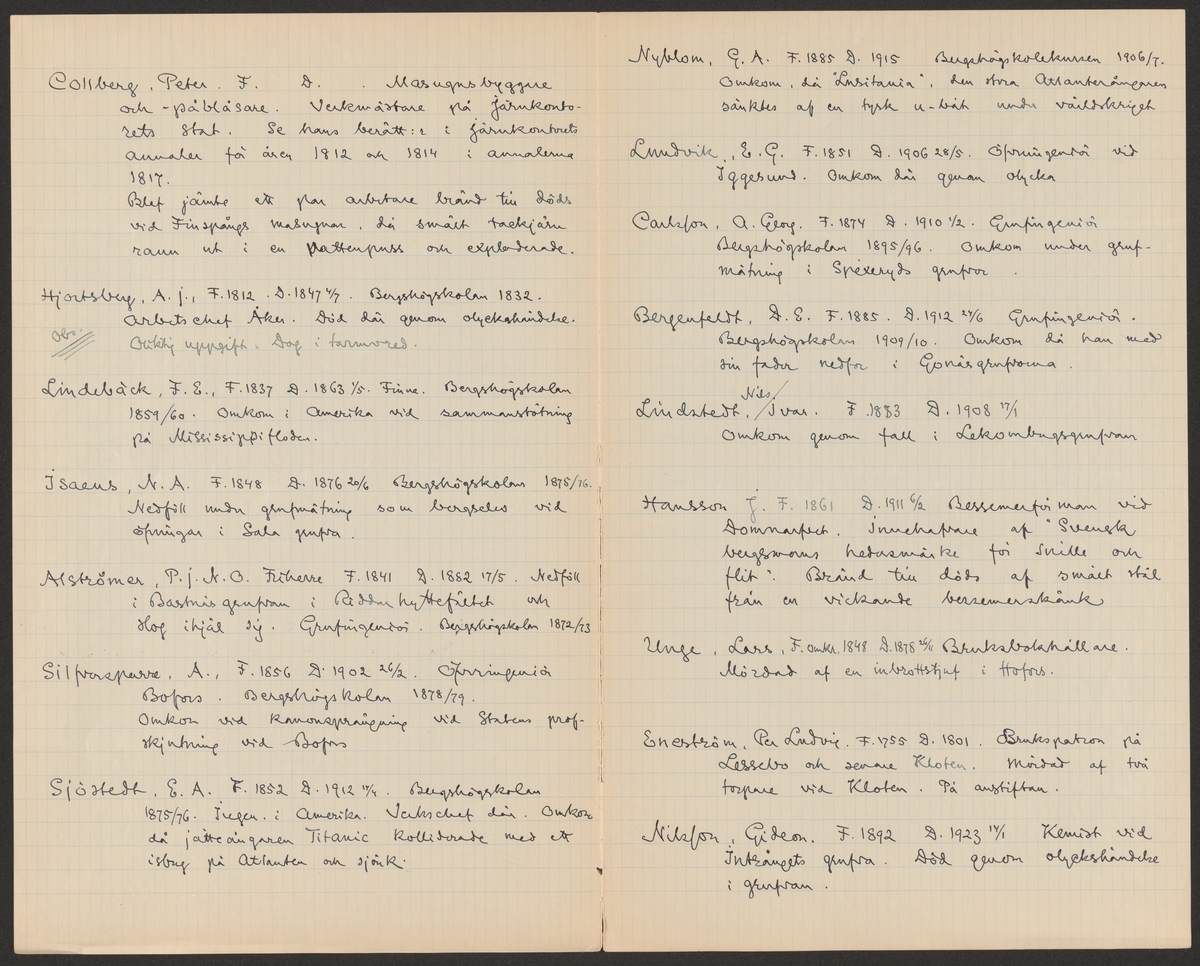 Collberg, Peter. F. D. . Masugnsbyggare
och -påblåsare. Verkmästare på Järnkonto-
rets stat. Se hans berätt:r i Järnkontorets
annaler för åren 1812 och 1814 i annalerna
1817.
Blef jämte ett par arbetare bränd till döds
vid Finspångs masugnar, då smält tackjärn
rann ut i en vattenpuss och exploderade.
Hjortsberg, A. J., F. 1812. D. 1847 4/7. Bergshögskolan 1832.
Arbetschef Åker. Död där genom olyckshändelse.
Obs. Oriktig uppgift. Dog i tarmvred.
Lindebäck, F. E., F. 1837 D. 1863 1/5. Finne. Bergshögskolan
1859/60. Omkom i Amerika vid sammanstötning
på Mississippifloden.
Isaeus, N. A. F. 1848 D. 1876 20/6 Bergshögskolan 1875/76.
Nedföll under grufmätning som bergselev vid
öfningar i Sala grufva.
Alströmer, P. J. N. O. Friherre F. 1841 D. 1882 17/5. Nedföll
i Bastnäsgrufvan i Riddarhyttefältet och
slog ihjäl sig. Grufingeniör. Bergshögskolan 1872/73
Silfversparre, A., F. 1856 D. 1902 26/2. Öfveringeniör
Bofors. Bergshögskolan 1878/79.
Omkom vid kanonsprängning vid Statens prof-
skjutning vid Bofors
Sjöstedt, E. A. F. 1852 D. 1912 15/4. Bergshögskolan
1875/76. Ingen. i Amerika. Verkschef där. Omkom
då jätteångaren Titanic kolliderade med ett
isberg på Atlanten och sjönk.
Nyblom, G. A. F. 1885 D. 1915 Bergshögskolekursen 1906/7.
Omkom, då "Lusitania", den stora Atlanterångaren
sänktes af en tysk u-båt under världskriget
Lundvik, E. G. F. 1851 D. 1906 28/5. Öfveringeniör vid
Iggesund. Omkom där genom olycka
Carlsson, A. Georg. F. 1874 D. 1910 1/2. Grufingeniör
Bergshögskolan 1895/96. Omkom under gruf-
mätning i Spexeryds grufvor.
Bergenfeldt, D. E. F. 1885. D. 1912 24/6 Grufingeniör.
Bergshögskolan 1909/10. Omkom då han med
sin fader nedfor i Gonäsgrufvorna.
Lindstedt, Nils Ivar. F. 1883 D. 1908 17/1
Omkom genom fall i Lekombergsgrufvan
Hansson J. F. 1861 D. 1911 6/2 Bessemerförman vid
Domnarfvet. Innehafvare af "Svensk
bergsmans hedersmärke för snille och
flit". Bränd till döds af smält stål
från en vickande bessemerskänk
Unge, Lars, F. omkr. 1848 D. 1878 26/4 Bruksbokhållare.
Mördad af en inbrottstjuf i Hofors.
Eneström, Per Ludvig. F. 1755 D. 1801. Brukspatron på
Lessebo och senare Kloten. Mördad af två
torpare vid Kloten. På anstiftan.
Nilsson, Gideon. F. 1892 D. 1923 17/1 Kemist vid
Intrångets grufva. Död genom olyckshändelse
i grufvan.